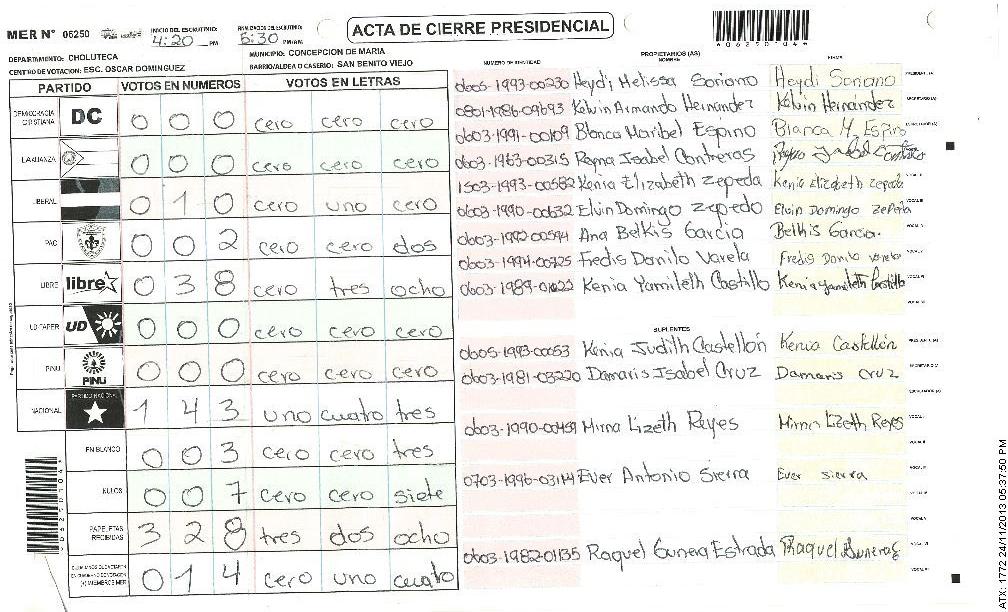 MER N° 06250
INICIO DEL ESCRUTINIO: 4:20 PM
FINALIZACION DEL ESCRUTINIO: 5:30 PM/AM
ACTA DE CIERRE PRESIDENCIAL
DEPARTAMENTO: CHOLUTECA
MUNICIPIO: CONCEPCION DE MARIA
CENTRO DE VOTACION: ESC. OSCAR DOMINGUEZ
BARRIO/ALDEA O CASERIO: SAN BENITO VIEJO
PARTIDO VOTOS EN NUMEROS VOTOS EN LETRAS
DEMOCRACIA CRISTIANA DC 0 0 0 cero cero cero
LA ALIANZA 0 0 0 cero cero cero
LIBERAL 0 1 0 cero uno cero
PAC 0 0 2 cero cero dos
LIBRE libre 0 3 8 cero tres ocho
UD-FAPER UD 0 0 0 cero cero cero
PINU PINU 0 0 0 cero cero cero
NACIONAL PARTIDO NACIONAL 1 4 3 uno cuatro tres
EN BLANCO 0 0 3 cero cero tres
NULOS 0 0 7 cero cero siete
PAPELETAS RECIBIDAS 3 2 8 tres dos ocho
0 1 4 cero uno cuatro
NUMERO DE IDENTIDAD
PROPIETARIOS (AS)
NOMBRE
FIRMA
0605-1993-00230 Heydi Melissa Soriano Heydi Soriano
0801-1986-09693 Kelvin Armando Hernandez Kelvin Hernández
0603-1991-00109 Blanca Maribel Espino Blanca M. Espino
0603-1963-00315 Reyna Isabel Contreras
1503-1993-00582 Kenia Elizabeth Zepeda Kenia Elizabeth Zepeda
0603-1990-00632 Elvin Domingo Zepedo Elvin Domingo Zepeda
0603-1992-00594 Ana Belkis Garcia Belkis Garcia.
0603-1994-00725 Fredis Danilo Varela Fredis Danilo Varela
Kenia Yamileth Castillo Kenia Yamileth Castillo
SUPLENTES
0605-1993-00053 Kenia Judith Castellón Kenia Castellón
0603-1981-03220 Damaris Isabel Cruz Damaris Cruz
0603-1990-00459 Mirna Lizeth Reyes Mirna Lizeth Reyes
0703-1996-03144 Ever Antonio Sierra Ever sierra
0603-1982-01135 Raquel Gunera Estrada Raquel Guneras
ATX: 1772 24/11/2013 05:37:50 PM